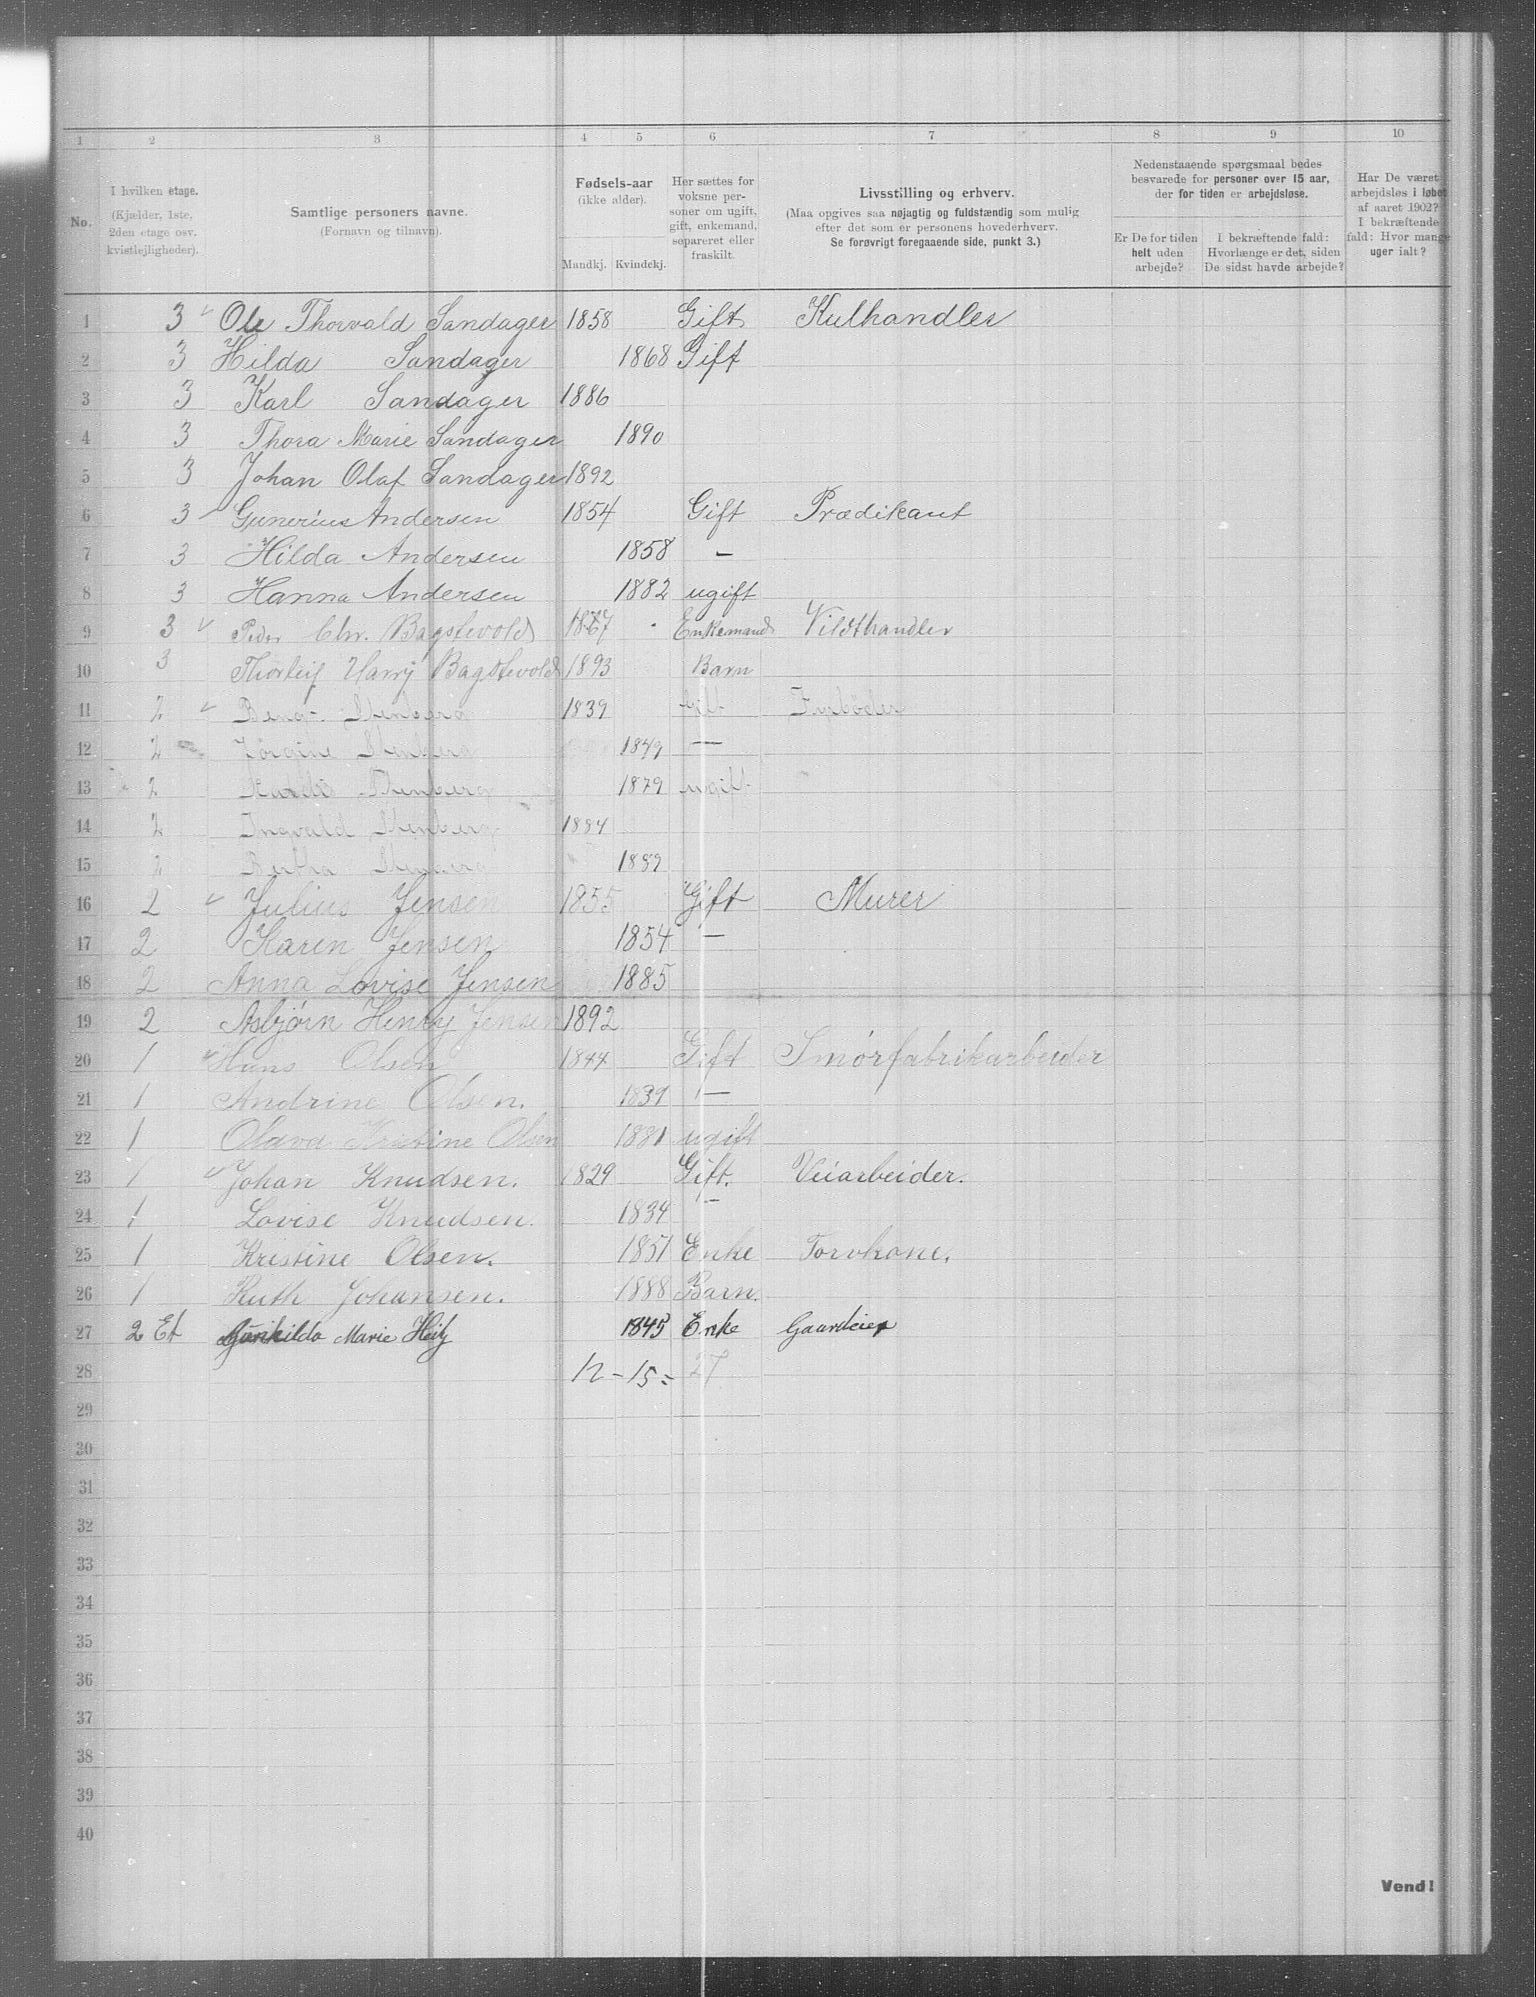 1 2 3 4 5 6 7 8 9 10
No.
I hvilken etage.
(Kjælder, 1ste,
2den etage osv.
kvistlejligheder).
Samtlige personers navne.
(Fornavn og tilnavn).
Fødsels-aar
(ikke alder).
Mandkj. Kvindekj.
Her sættes for
voksne per-
soner om ugift,
gift, enkemand,
separeret eller
fraskilt.
Livsstilling og erhverv.
(Maa opgives saa nøjagtig og fuldstændig som mulig
efter det som er personens hovederhverv.
Se forøvrigt foregaaende side, punkt 3.)
Nedenstaaende spørgsmaal bedes
besvarede for personer over 15 aar,
der for tiden er arbejdsløse.
Er De for tiden
helt uden
arbejde?
I bekræftende fald:
Hvorlænge er det, siden
De sidst havde arbejde?
Har De været
arbejdsløs i løbet
af aaret 1902?
I bekræftende
fald: Hvor mange
uger ialt?
1 3 Ole Thorvald Sandager 1858 Gift Kulhandler
2 3 Hilda Sandager 1868 Gift
3 3 Karl Sandager 1886
4 3 Thora Marie Sandager 1890
5 3 Johan Olaf Sandager 1892
6 3 Gunerius Andersen 1854 Gift Prædikant
7 3 Hilda Andersen 1858 —
8 3 Hanna Andersen 1882 ugift
9 3 Peder Chr. Bagstevold Enkemand Vildthandler
10 3 Thorleif Harry Bagstevold 1893 Barn
11 2 Stenberg 1839 Gift Fyrbøder
12 2 Jørgine Stenberg 1849 —
13 2 Stenberg 1879 ugift
14 2 Ingvald Stenberg 1884
15 2 Bertha Stenberg 1889
16 2 Julius Jensen 1855 Gift Murer
17 2 Karen Jensen 1854 —
18 2 Anna Lovise Jensen 1885
19 2 Asbjørn Henry Jensen 1892
20 1 Hans Olsen 1844 Gift Smørfabrikarbeider
21 1 Andrine Olsen. 1839 —
22 1 Olava Kristine Olsen 1881 ugift
23 1 Johan Knudsen. 1829 Gift. Veiarbeider.
24 1 Lovise Knudsen. 1834 —
25 1 Kristine Olsen. 1851 Enke Torvkone.
26 1 Ruth Johansen. 1888 Barn.
27 2 Et Marie 1845 Enke Gaardeier
28 12 - 15 = 27
29
30
31
32
33
34
35
36
37
38
39
40
Vend!